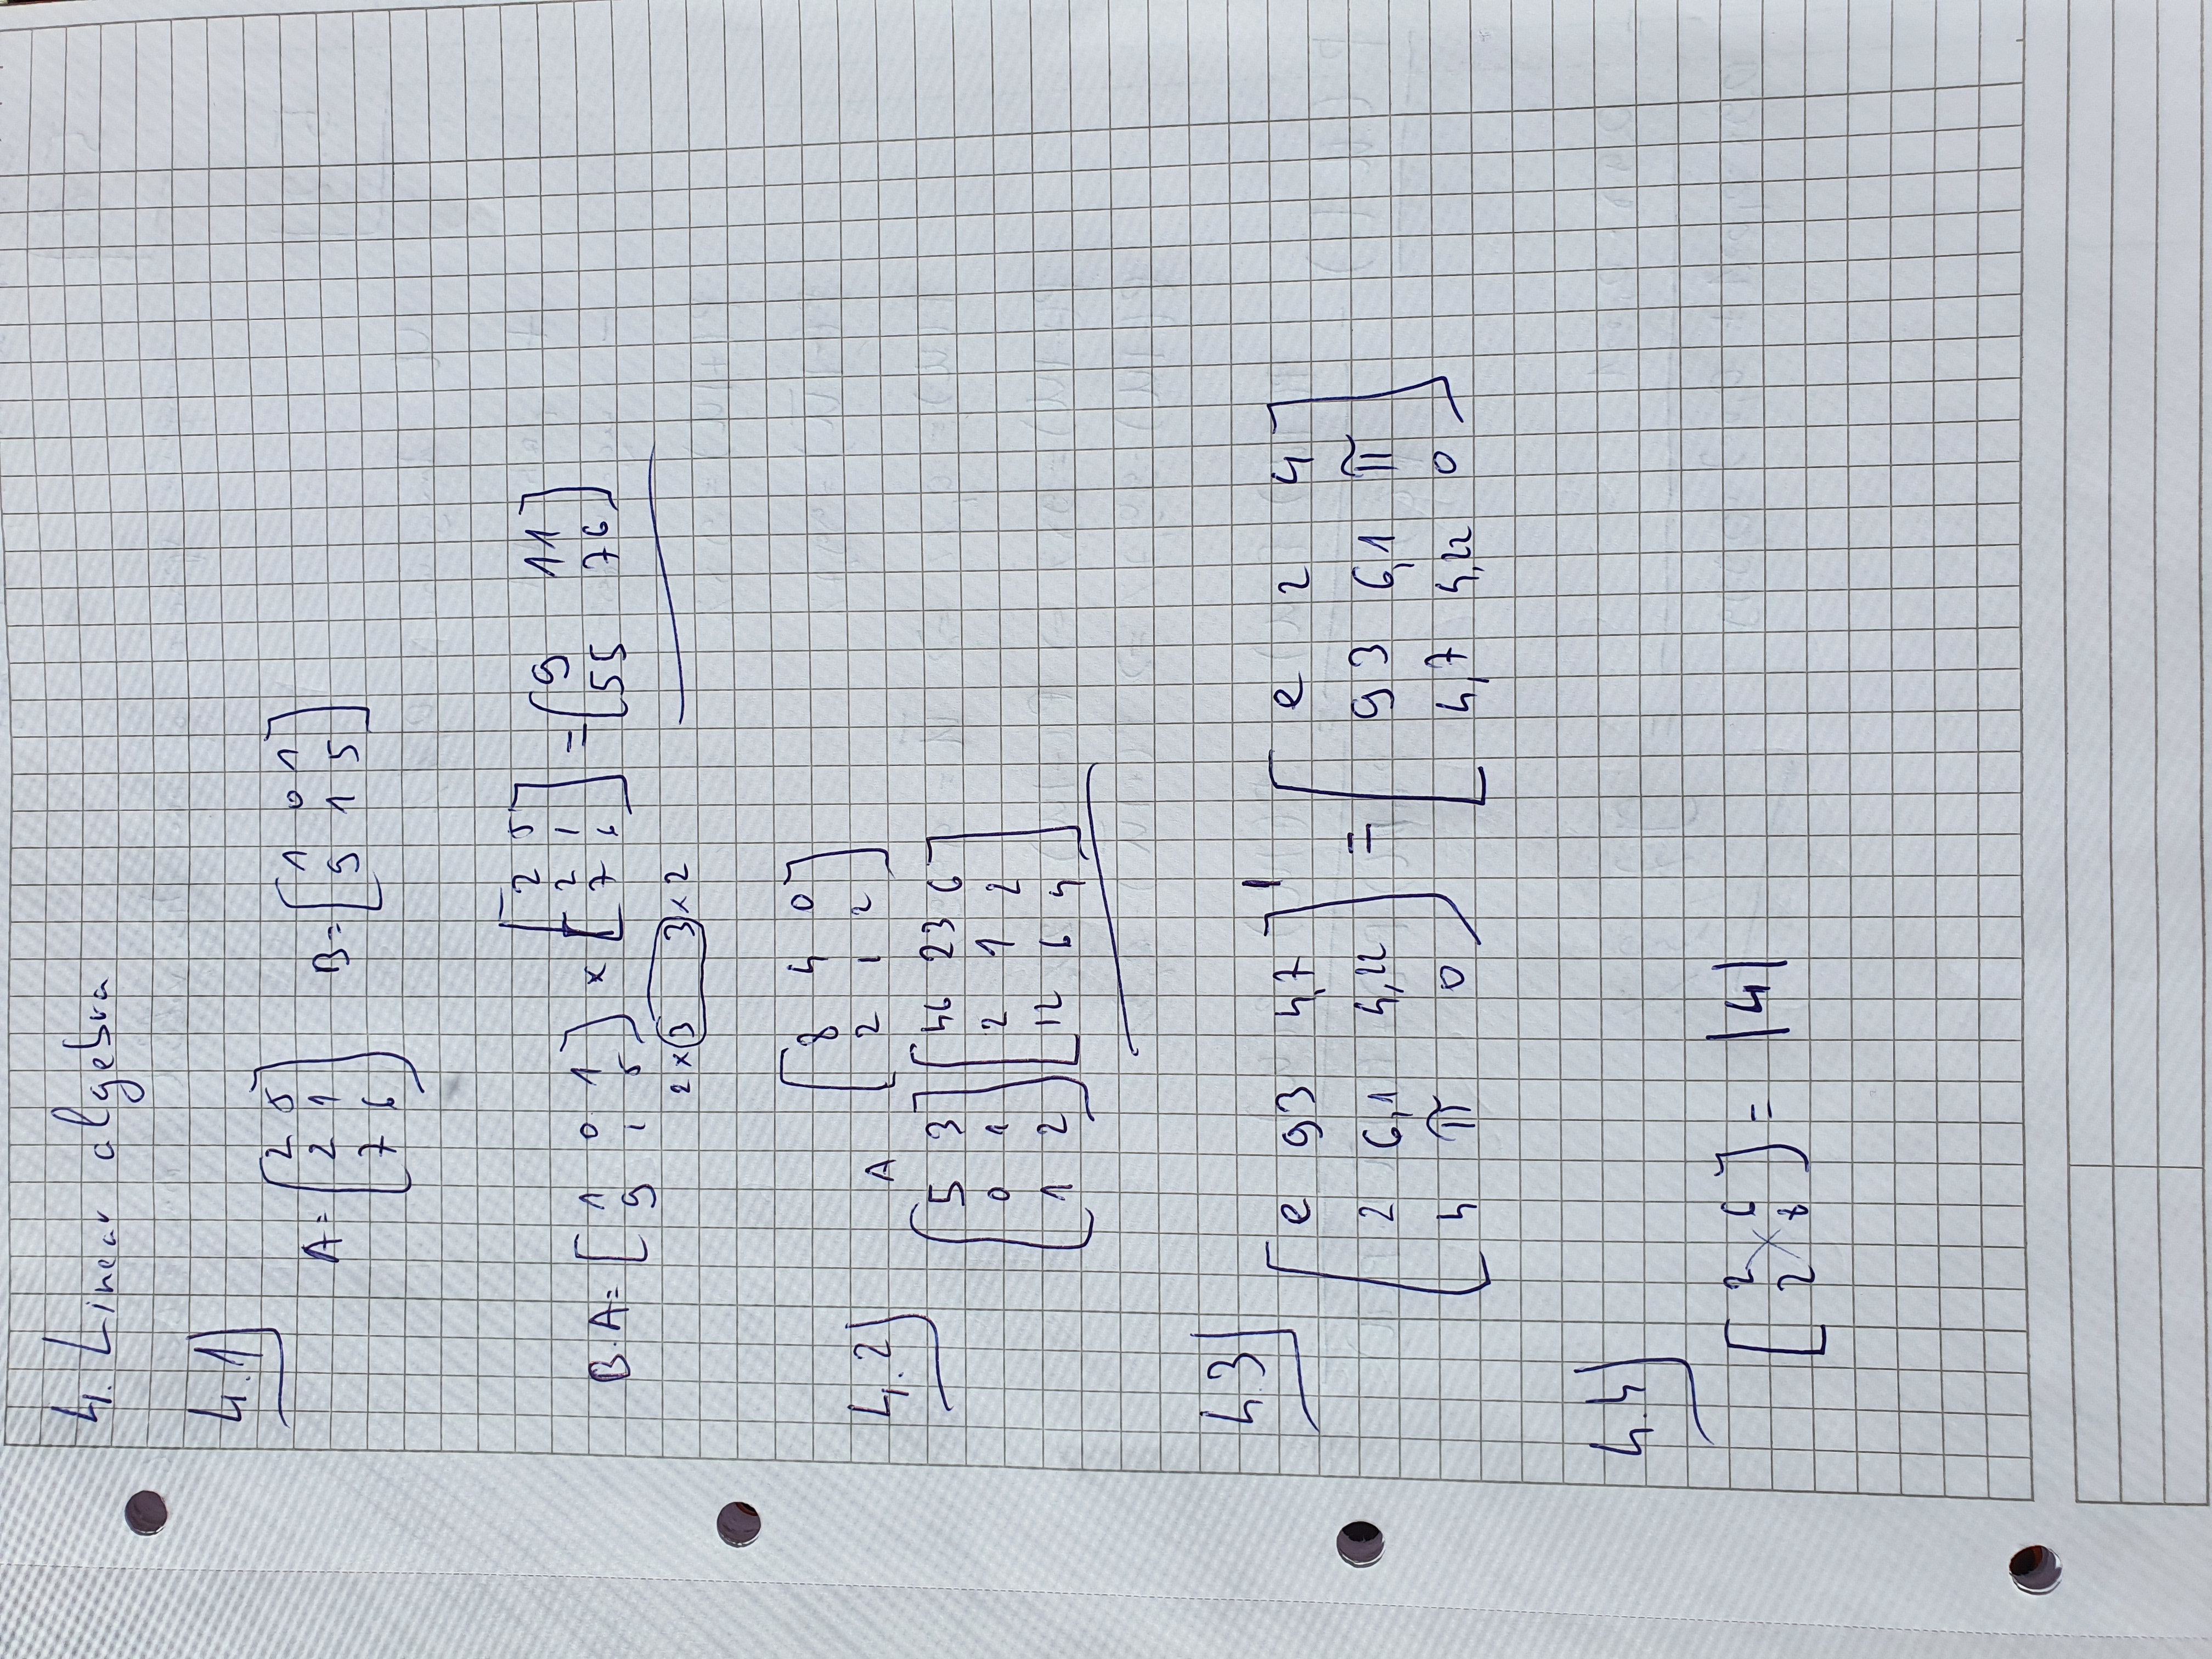 4. Linear algebra
4.1
A = [2 5
2 1
7 6] B = [1 0 1
5 1 5]
B·A = [1 0 1
9 1 5] x [2 5
2 1
7 6] = [9 11
55 76]
2x3 3x2
4.2
A [8 4 0
2 1 2]
[5 3
0 1
1 2] [46 23 6
2 1 2
12 6 4]
4.3
[e 93 4,7
2 6,1 4,22
4 π 0]' = [e 2 4
93 6,1 π
4,7 4,22 0]
4.4
[2 6
2 8] = |4|